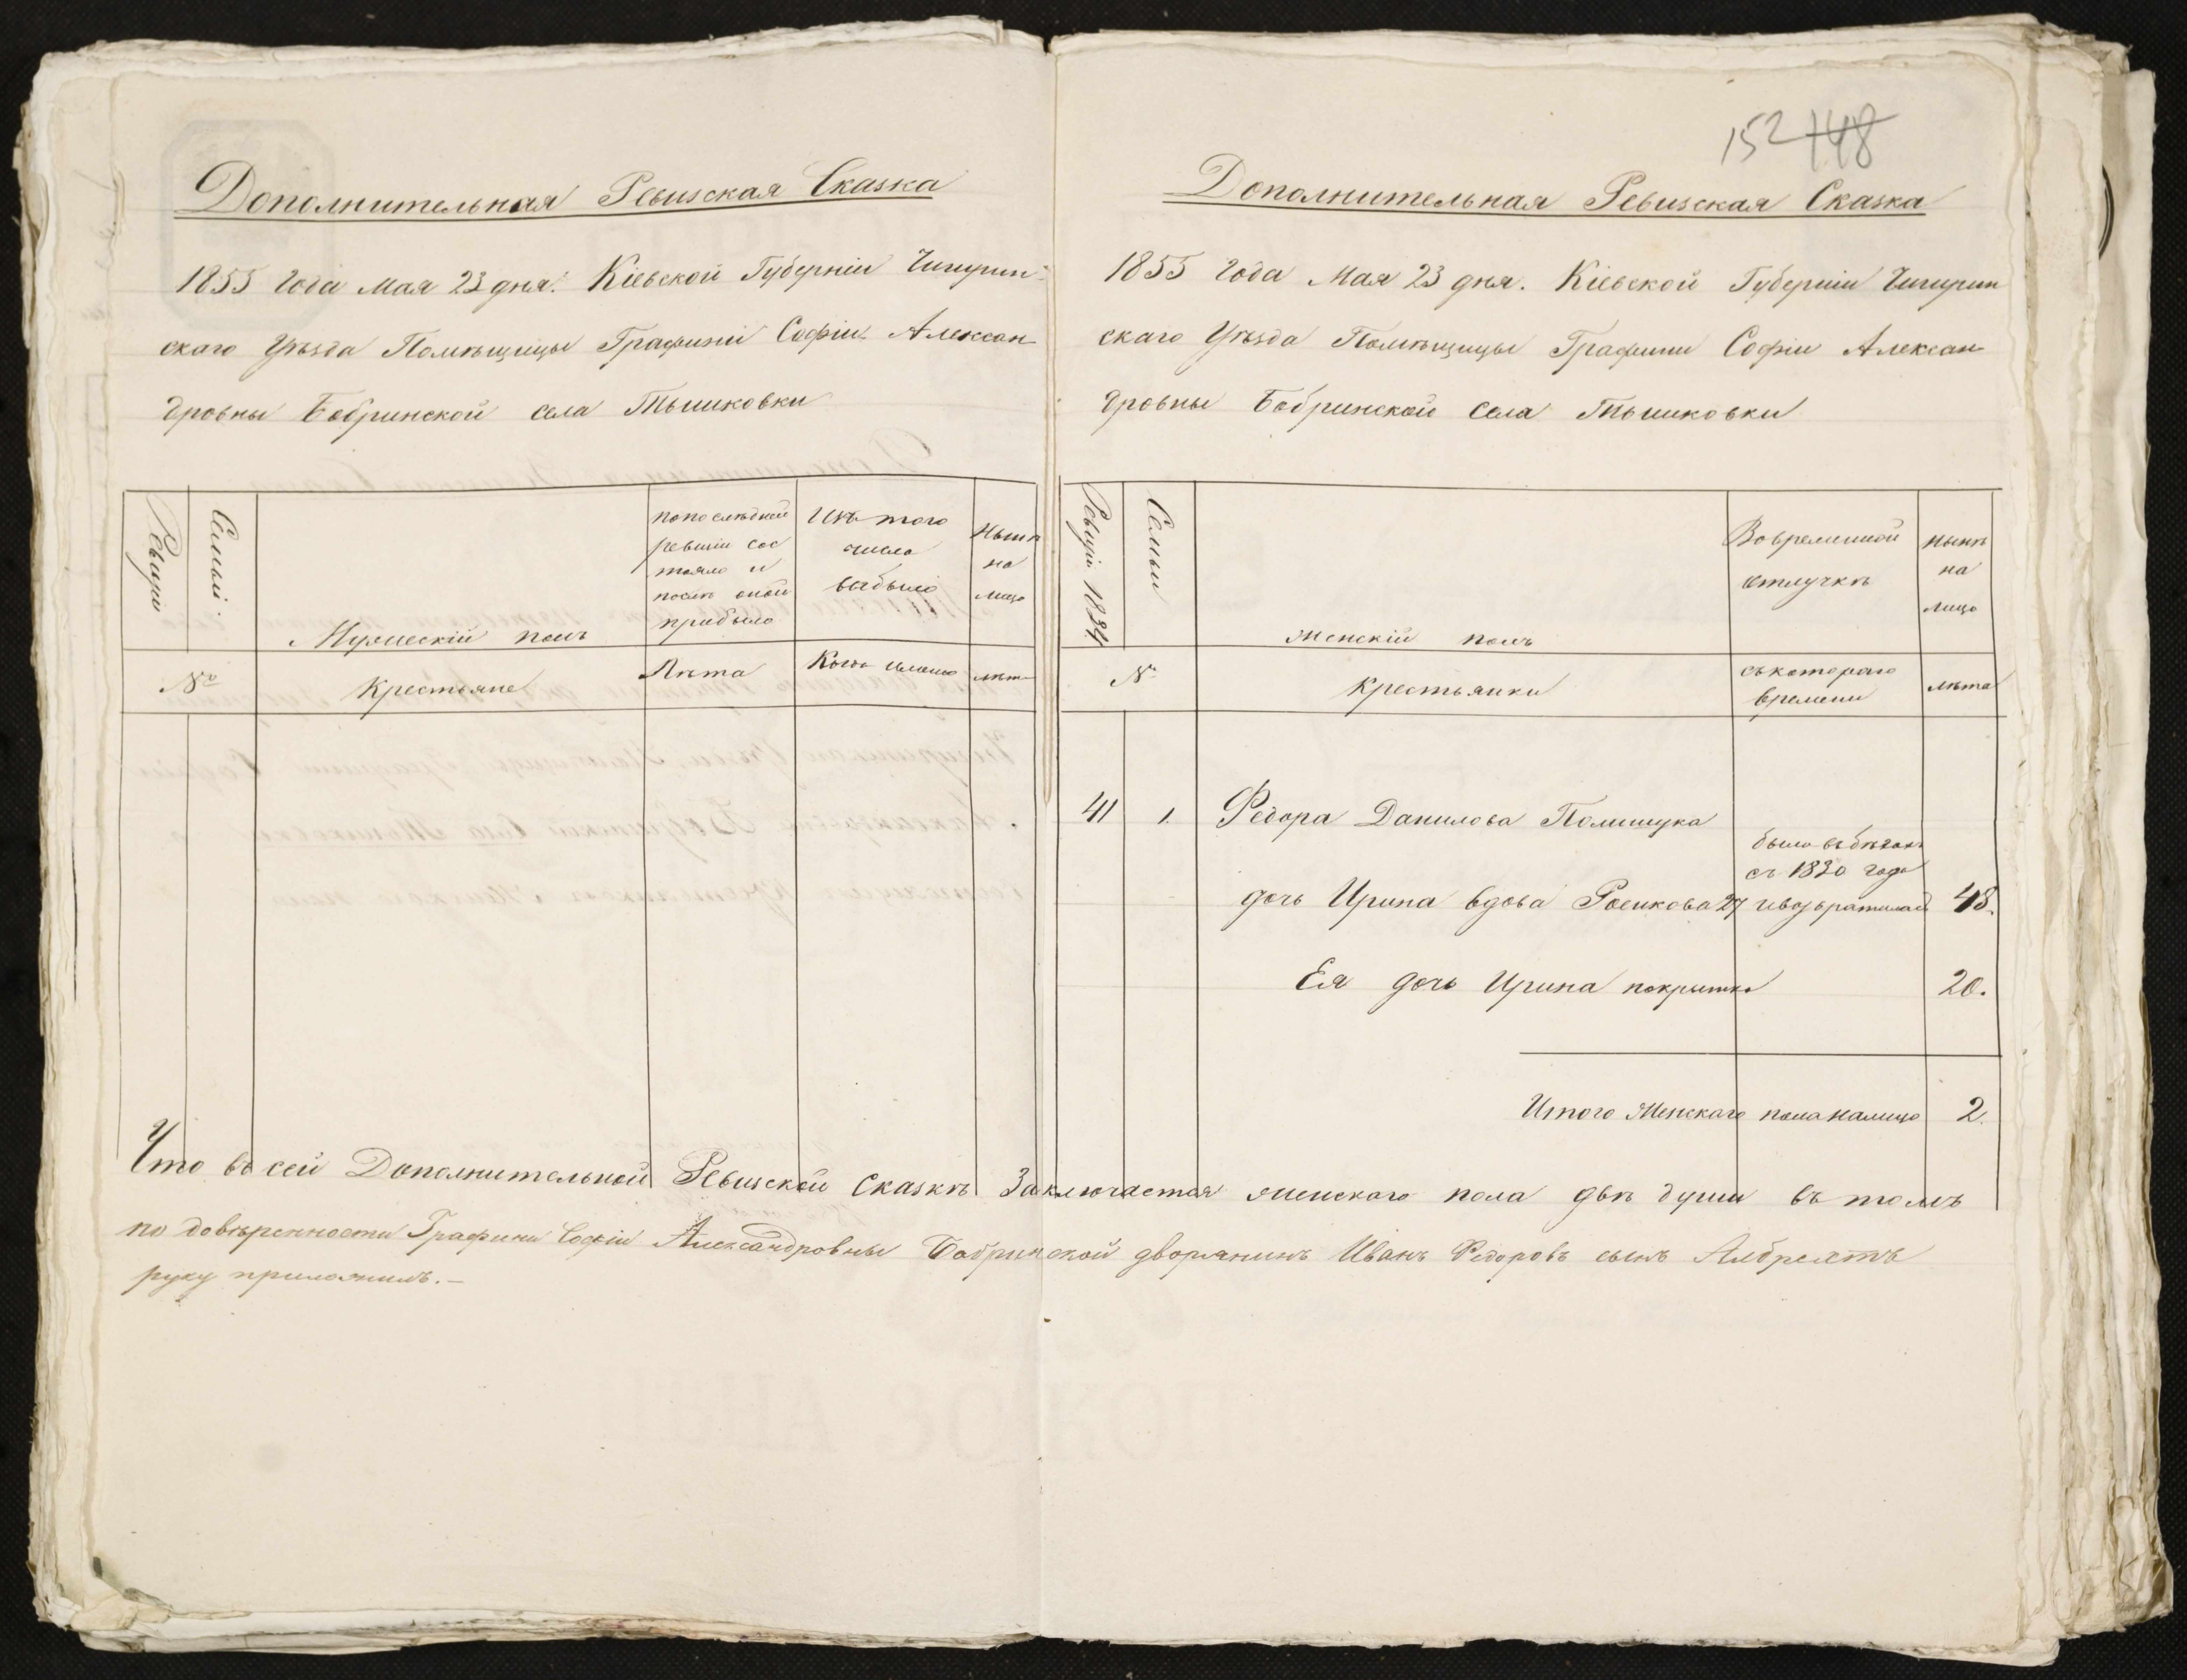 152 148
Дополнительная Ревизская Сказка
1855 года мая 23 дня. Кіевской Губерніи Чигирин
скаго Уѣзда Помѣщицы Графини Софіи Алексан
дровны Бобринской села Тѣшковки
Ревизіи
Семьи.
Мужескій полъ
По последней
ревизіи сос
тояло и
послѣ оной
прибыло
Изъ того
числа
выбыло
Нынѣ
на
лицо
№
Крестьяне
Лѣта
Когда имено
лѣта
Дополнительная Ревизская Сказка
1855 года Мая 23 дня. Кіевской Губерніи Чигирин
скаго Уѣзда Помѣщицы Графини Софіи Алексан
дровны Бобринской села Тѣшковки
Ревизіи 1834
Семьи
Женскій полъ
Во временной
отлучкѣ
нынѣ
на
лицо
№
Крестьянки
съ котораго
времени
лѣта
41 1. Федора Данилова Полищука
была въ бѣгахъ
съ 1830 года
дочь Ирина вдова 27 и возвратилась 48.
Ея дочь Ирина покрытка 20.
Итого Женскаго пола налицо 2.
Что въ сей Дополнительной Ревизской Сказкѣ Заключается женскаго пола двѣ души въ томъ
по довѣренности Графини Софіи Александровны Бобринской дворянинъ Иванъ Федоровъ сынъ Албрехтъ
руку приложилъ.—